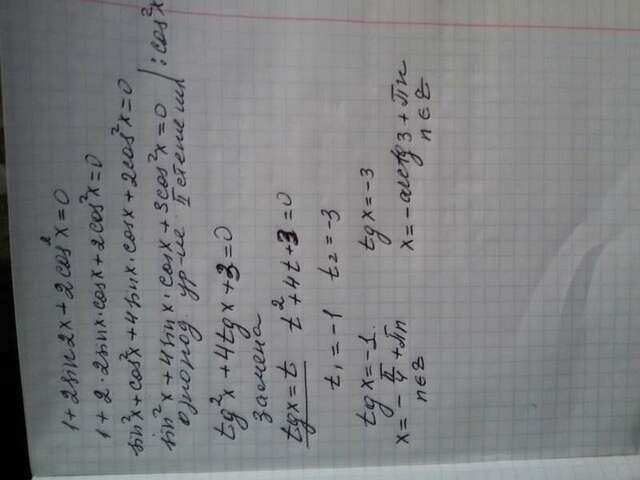 1 + 2sin2x + 2cos²x = 0
1 + 2·2sinx·cosx + 2cos²x = 0
sin²x + cos²x + 4sinx·cosx + 2cos²x = 0
sin²x + 4sinx·cosx + 3cos²x = 0 | : cos²x
однород. ур-ие II степени
tg²x + 4tgx + 3 = 0
замена
tgx = t t² + 4t + 3 = 0
t₁ = -1 t₂ = -3
tgx = -1 tgx = -3
x = -π/4 + πn x = -arctg3 + πn
n ∈ Z n ∈ Z